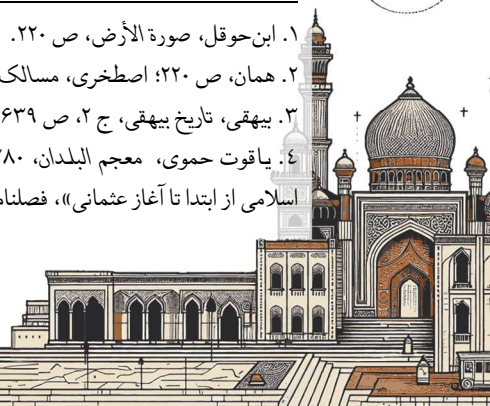 ۱. ابن‌حوقل، صورة الأرض، ص ۲۲۰.
۲. همان، ص ۲۲۰؛ اصطخری، مسالک
۳. بیهقی، تاریخ بیهقی، ج ۲، ص ۶۳۹
٤. یاقوت حموی، معجم البلدان، ۲۸۰
اسلامی از ابتدا تا آغاز عثمانی»، فصلنام